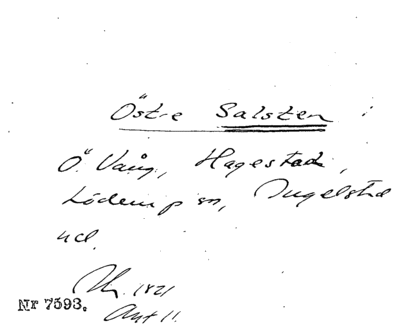 Östre Salsten i
Ö. Vång, Hagestad,
Löderup sn, Ingelstad
hd.
1821
Akt 11.
Nr 7393.